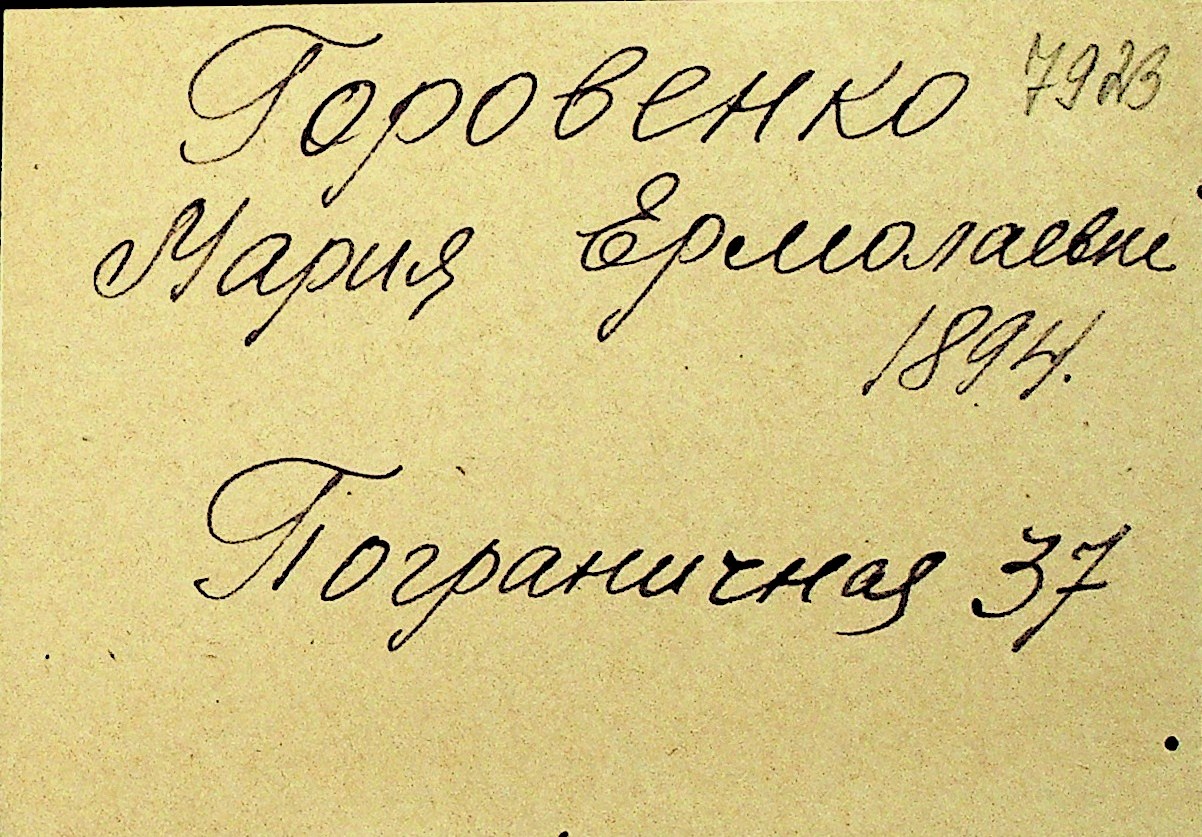 Горовенко 7923
Мария Ермолаевна
1894.
Пограничная 37